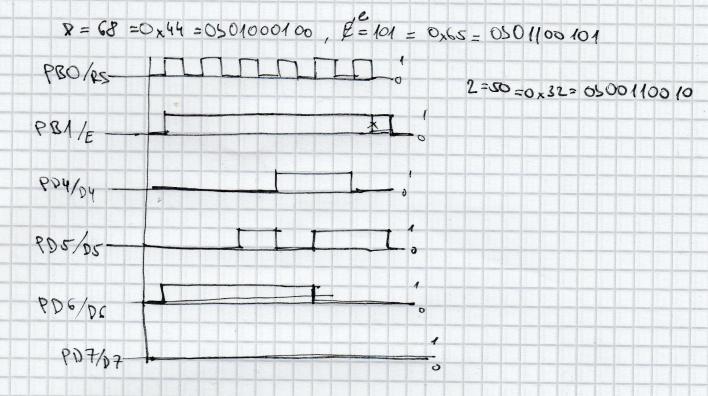 = 68 = 0x44 = 0b01000100, e = 101 = 0x65 = 0b01100101
2=50=0x32=0b00110010
PB0/RS 1 0
PB1/E 1 0
PD4/D4 1 0
PD5/D5 1 0
PD6/D6 1 0
PD7/D7 1 0